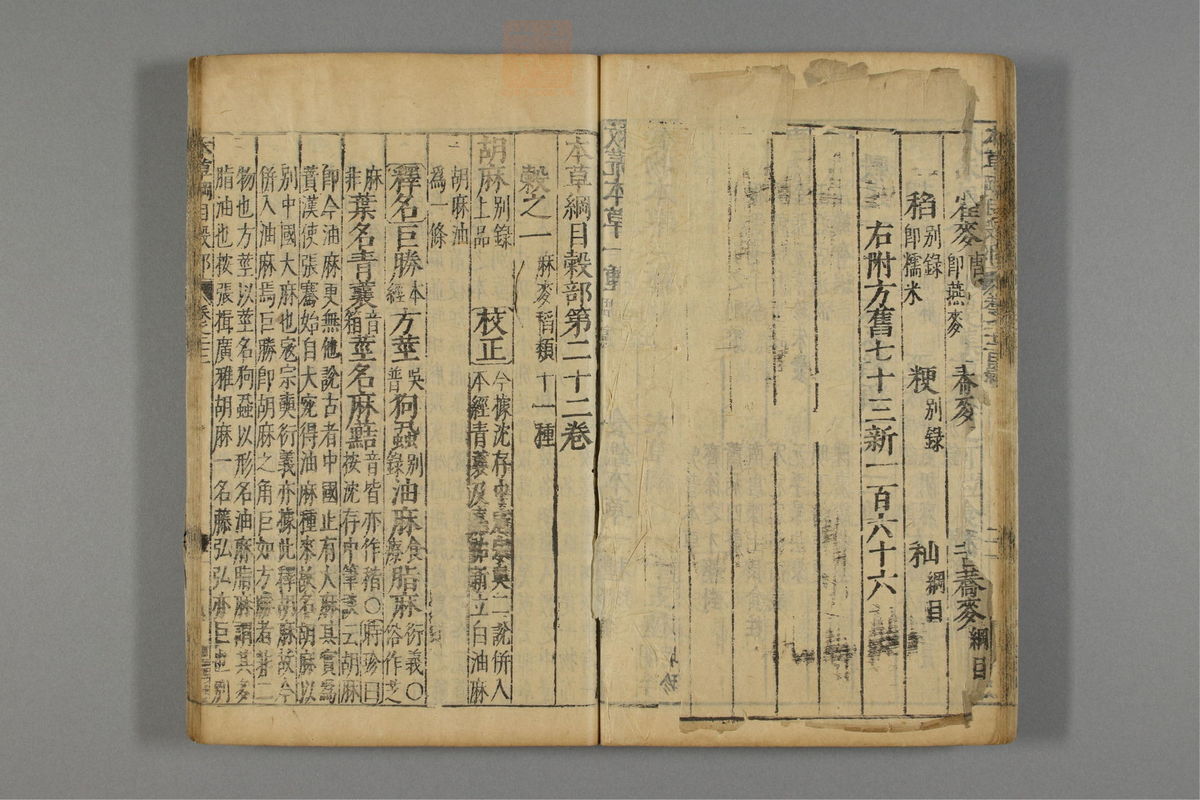 雀麥即燕麥 蕎麥 苦蕎麥綱目
稻別錄即糯米 粳別錄 秈綱目
右附方舊七十三新一百六十六
本草綱目穀部第二十二卷
穀之一 麻麥稻類十二種
胡麻別錄上品 校正今據沈存中寇宗奭二說併入本經青蘘及
立白油麻胡麻油為一條
釋名巨勝本經方莖吳普狗蝨別錄油麻食療脂麻衍義○俗作芝
麻非葉名青蘘音箱莖名麻䕸音皆亦作秸○時珍曰按沈存中筆談云胡麻
即今油麻更無他說古者中國止有大麻其實為
蕡漢使張騫始自大宛得油麻種來故名胡麻以
別中國大麻也寇宗奭衍義亦據此釋胡麻故今
併入油麻焉巨勝即胡麻之角巨如方勝者若二
物也方莖以莖名狗蝨以形名油麻脂麻謂其多
脂油也按張揖廣雅胡麻一名藤弘弘亦巨也別
本草綱目穀部 卷之二十二